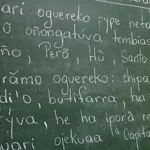 uari oguereko ype neta
o oñongatúva tembias
ño, Però, Hù, Santo
rãmo oguereko: chipa
di'o, butifarra, ha
ýva, he ha iporã re
uari ojekuaa Capita